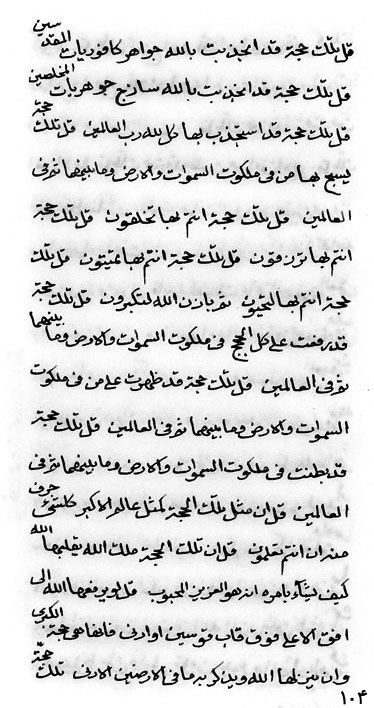 قل تلك حجة قد انجذبت بالله جواهر كافوريات المقدسين
قل تلك حجة قد انجذبت بالله سوازج جوهريات المخلصين
قل تلك حجة قد استجذب بها كل لله رب العالمين قل تلك حجة
يسبح بها من في ملكوت السموات والارض وما بينهما ثم في
العالمين قل تلك حجة انتم بها تخلقون قل تلك حجة
انتم بها ترزقون قل تلك حجة انتم بها تميتون قل تلك
حجة انتم بها لتحييون ثم باذن الله لتكبرون قل تلك حجة
قد رفعت على كل الحجج في ملكوت السموات والارض وما بينهما
ثم في العالمين قل تلك حجة قد ظهرت على من في ملكوت
السموات والارض وما بينهما ثم في العالمين قل تلك حجة
قد بطنت في ملكوت السموات والارض وما بينهما ثم في
العالمين قل ان مثل تلك الحجة كمثل عالم الاكبر كلشئ حرف
عنده ان انتم تعلمون قل ان تلك الحجة ملك الله يقلبها الله
كيف يشآء بامره انه هو العزيز المحبوب قل لو يرفعها الله الى
افق الاعلى فوق قاب قوسين او ادنى فانها هي حجة الكبرى
وان ينزلها الله ويذكر به ما في الارضين الادنى تلك حجة
١٠٤